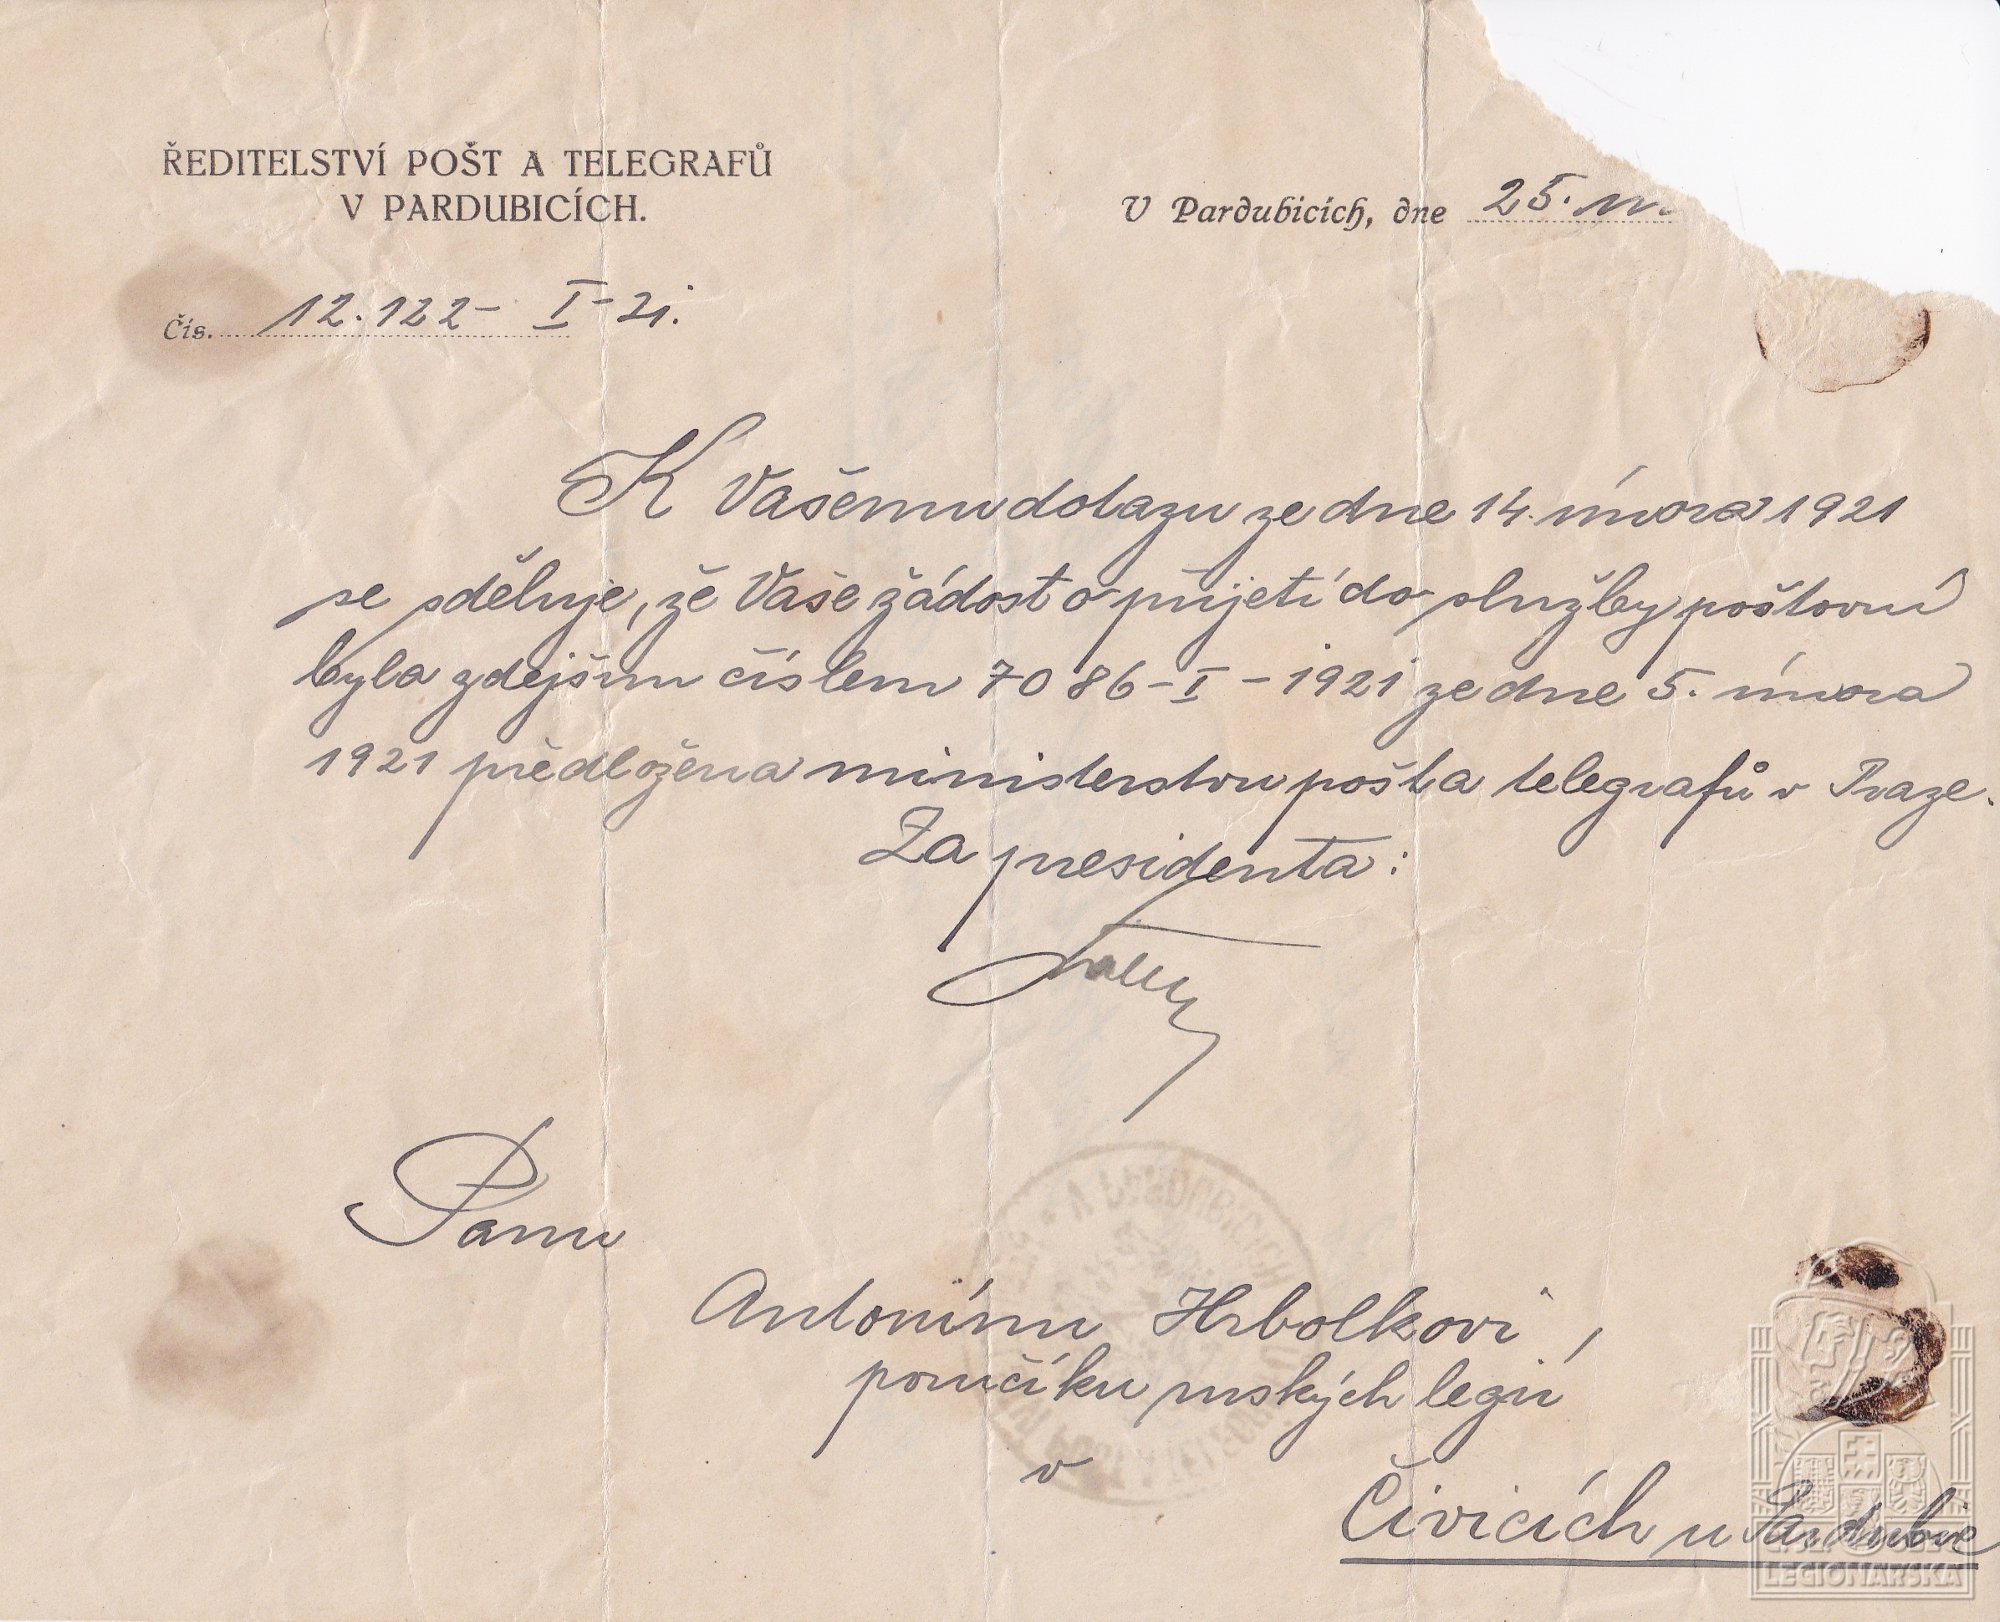 ŘEDITELSTVÍ POŠT A TELEGRAFŮ
V PARDUBICÍCH.
V Pardubicích, dne 25.
Čís. 12.122- I-21.
K Vašemu dotazu ze dne 14. února 1921
se sděluje, že Vaše žádost o přijetí do služby poštovní
byla zdejším číslem 7086-I-1921 ze dne 5. února
1921 předložena ministerstvu pošt a telegrafů v Praze.
Za presidenta:
Panu
Antonínu Hrbolkovi,
poručíku ruských legií
v
Čivicích u Pardubic
LEGIONÁŘSKÁ